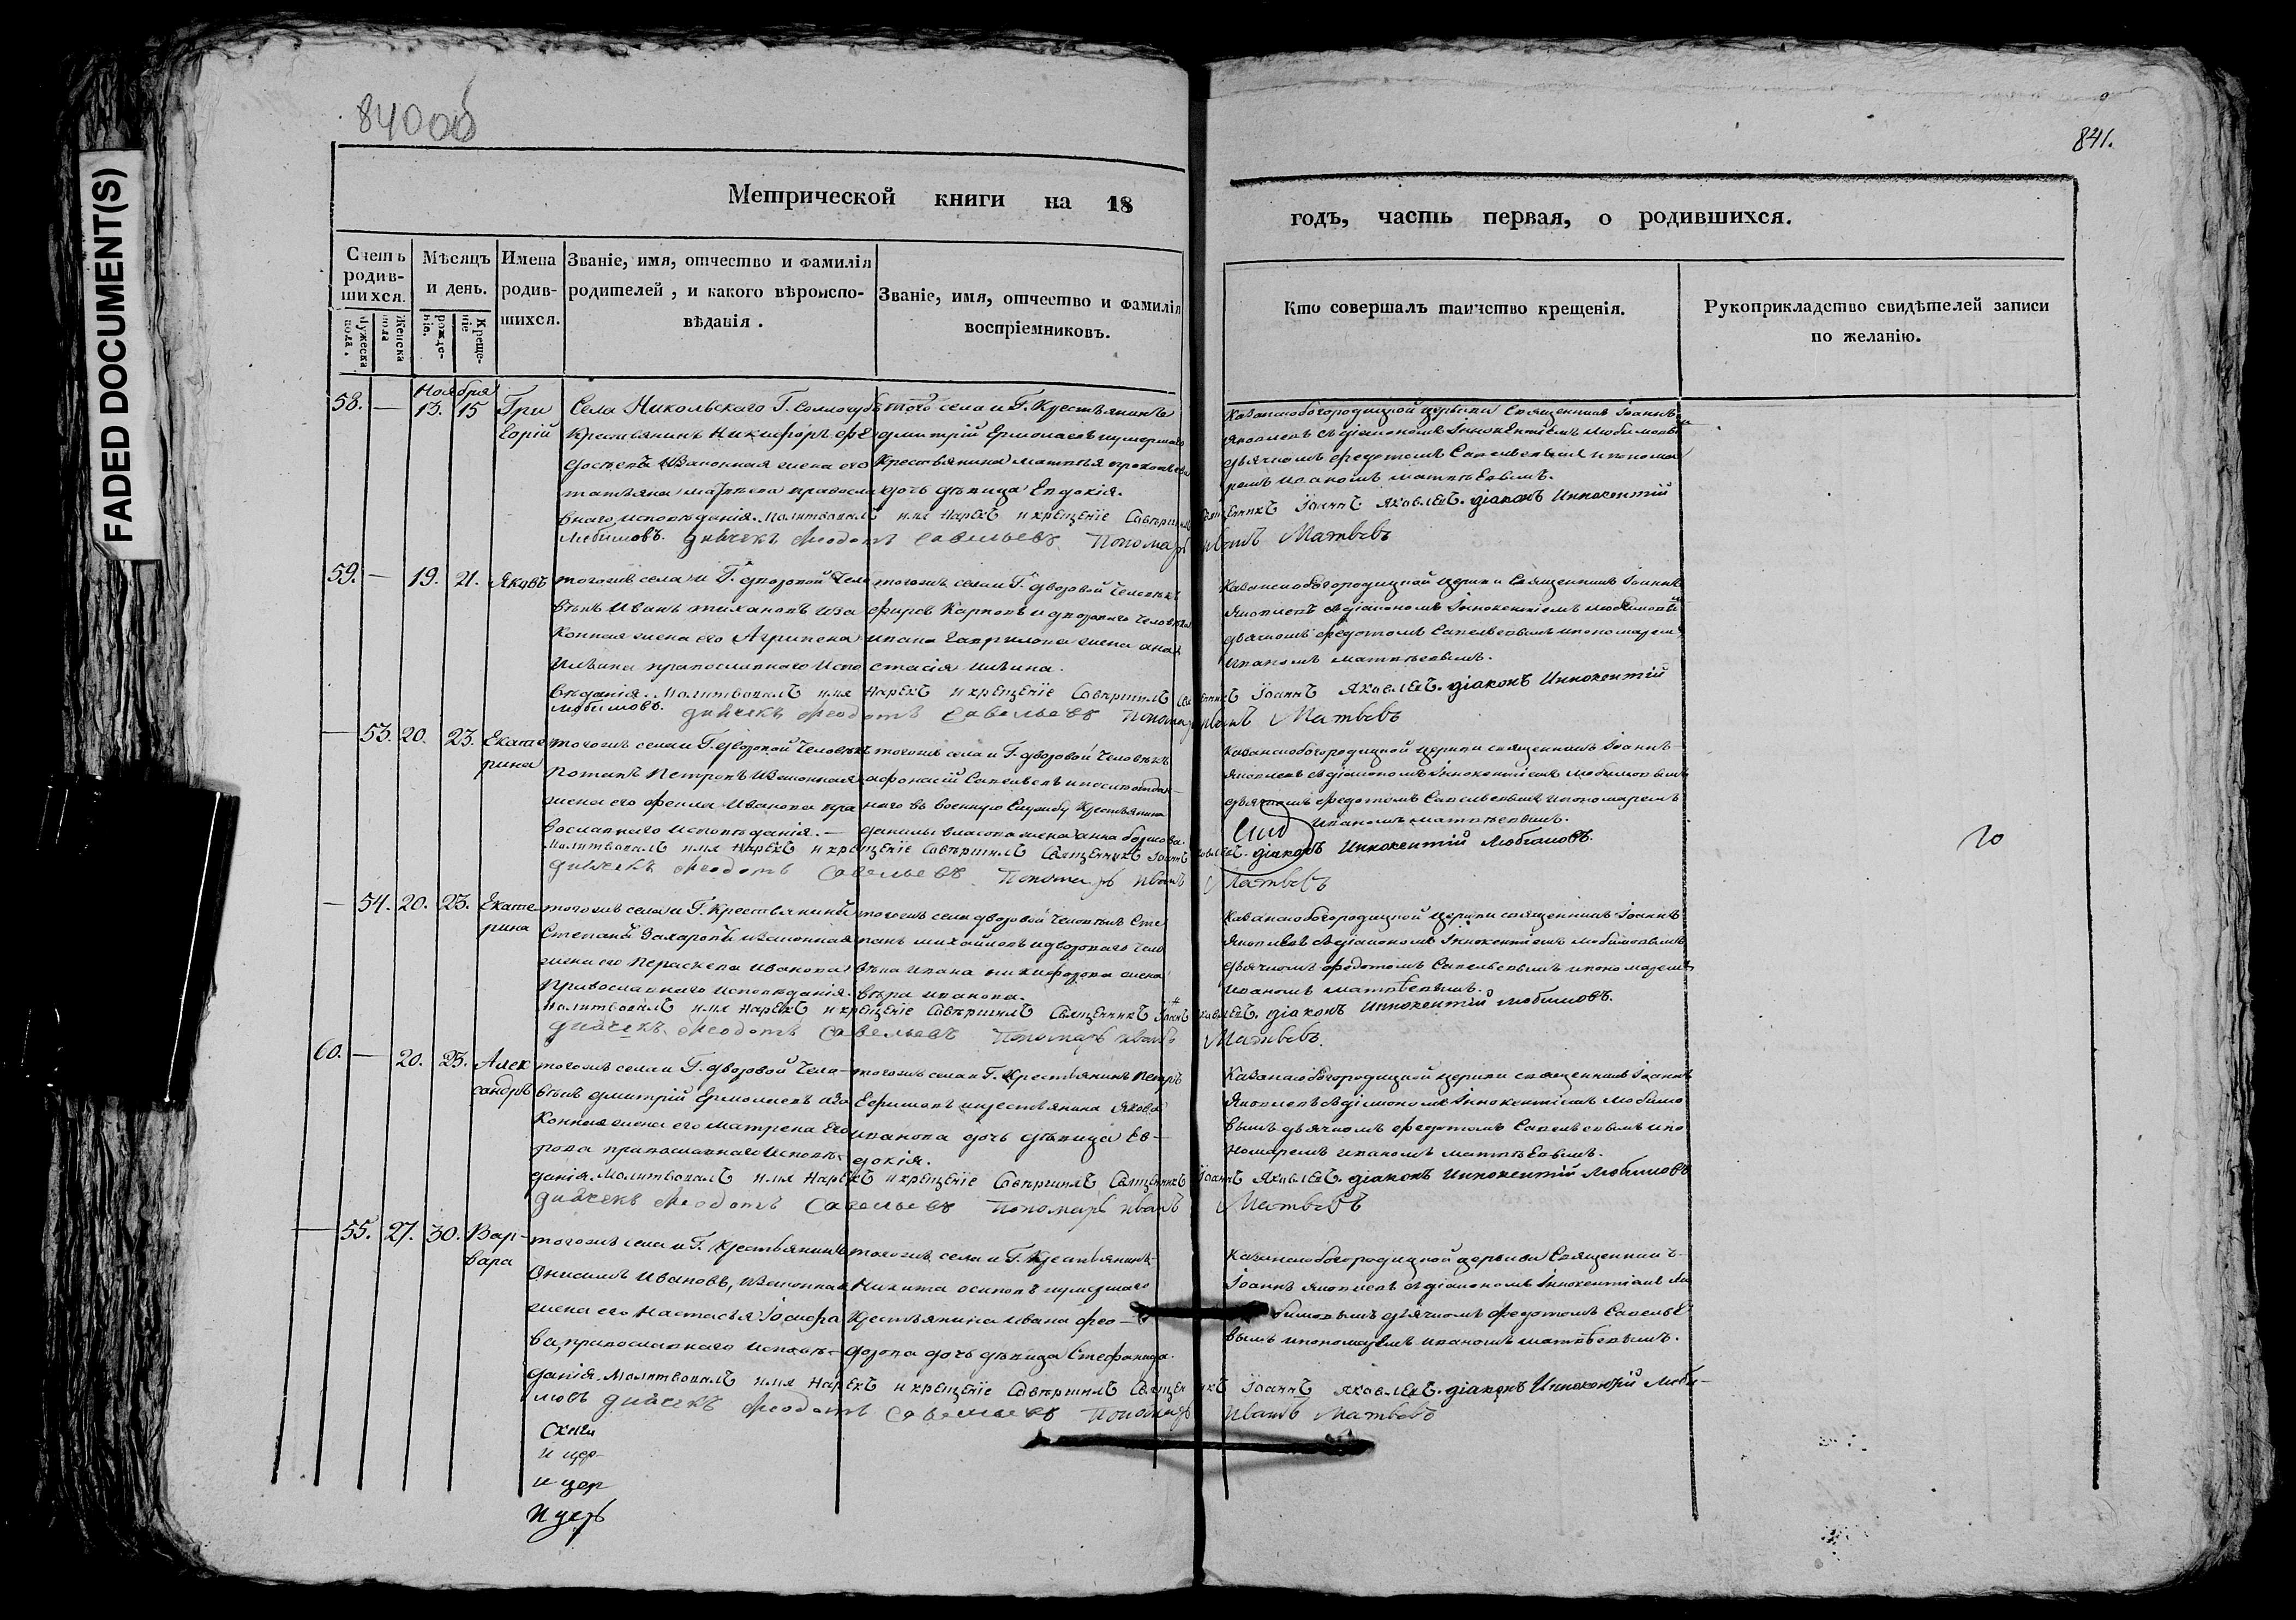 FADED DOCUMENT(S)
840об
841.
Метрической книги на 18
годъ, часть первая, о родившихся.
Счетъ родив-шихся.
Мужеска пола.
Женска пола
Мѣсяцъ и день.
рожде-ніе.
Креще-ніе
Имена родив-шихся.
Званіе, имя, отчество и фамилія родителей, и какого вѣроиспо-вѣданія.
Званіе, имя, отчество и фамилія воспріемниковъ.
Кто совершалъ таинство крещенія.
Рукоприкладство свидѣтелей записи по желанію.
Ноября
58. — 13. 15 Гри
горій
Села Никольскаго Г. Соллогубъ
Крестьянинъ Никифоръ Фе
достевъ изаконная жена его
татьяна матвѣева правосла
внаго исповѣданія.
того села и Г. Крестьянинъ
дмитрій Ермолаевъ иумершаго
Крестьянина матвѣя
дочь дѣвица Евдокія.
Казанскобогородицкой церькви Священникъ Іоаннъ
Яковлевъ съ діакономъ Іннокентіемъ Любимовы
дьячкомъ Федотомъ Савельевымъ ипонома
ремъ иваномъ матвѣевымъ.
Молитвовалъ имя Нарекъ и крещеніе Совершилъ Священникъ Іоаннъ Яковлевъ. діаконъ Иннокентій
Любимовъ. дьячекъ Феодотъ Савельевъ Пономарь иванъ Матвѣевъ
59. — 19. 21. Яковъ
тогожъ села и Г. дворовой Чело
вѣкъ Иванъ тихановъ иза
конная жена его Агрипена
Ильина православнаго испо
вѣданія.
тогожъ села и Г. дворовой Человѣкъ
фирсъ Карповъ и дворового человѣка
ивана Гаврилова жена ана
стасія ильина.
Казанскобогородицкой церкви Священникъ Іоаннъ
Яковлевъ съ діакономъ Іннокентіемъ любимовы
дьячкомъ Федотомъ Савельевымъ ипономаремъ
иваномъ матвѣевымъ.
Молитвовалъ имя Нарекъ и крещеніе Совершилъ Священникъ Іоаннъ Яковлевъ. діаконъ Иннокентій
Любимовъ. дьячекъ Феодотъ Савельевъ Пономарь иванъ Матвѣевъ
— 53. 20. 23. Екате
рина
тогожъ села и Г. дворовой Человѣкъ
Потапъ Петровъ изаконная
жена его фекла Иванова пра
вославнаго исповѣданія. —
тогожъ села и Г. дворовой Человѣкъ
афонасій Савельевъ
наго въ военную Службу Крестьянина
данилы власова жена анна борисова.
Казанскобогородицкой церкви священникъ Іоаннъ
Яковлевъ съ діакономъ Іннокентіемъ Любимовымъ
дьячкомъ Федотомъ Савельевымъ ипономаремъ
иваномъ матвѣевымъ.
Молитвовалъ имя Нарекъ и крещеніе Совершилъ Священникъ Іоаннъ Яковлевъ. діаконъ Иннокентій Любимовъ.
дьячекъ Феодотъ Савельевъ Пономарь иванъ Матвѣевъ
— 54. 20. 23. Екате
рина
тогожъ села и Г. крестьянинъ
Степанъ Захаровъ изаконная
жена его Параскева иванова
Православнаго исповѣданія.
тогожъ села дворовой человѣкъ Сте
панъ михайловъ и дворового чело
вѣка ивана никифорова жена
вѣра иванова.
Казанскобогородицкой церкви священникъ Іоаннъ
Яковлевъ съ діакономъ Іннокентіемъ Любимовымъ
дьячкомъ Федотомъ Савельевымъ ипономаремъ
иваномъ матвѣевымъ.
Молитвовалъ имя Нарекъ и крещеніе Совершилъ Священникъ Іоаннъ Яковлевъ. діаконъ Иннокентій Любимовъ.
дьячекъ Феодотъ Савельевъ Пономарь иванъ Матвѣевъ.
60. — 20. 23. Алек
сандръ
тогожъ села и Г. дворовой Чело-
вѣкъ дмитрій Ермолаевъ иза
конная жена его матрена Его
рова православнаго исповѣ-
данія.
тогожъ села и Г. Крестьянинъ Петръ
Ефимовъ икрестьянина Якова
иванова дочь дѣвица Ев-
докія.
Казанскобогородицкой церкви священникъ Іоаннъ
Яковлевъ съ діакономъ Іннокентіемъ любимо
вымъ дьячкомъ Федотомъ Савельевымъ ипо
номаремъ иваномъ матвѣевымъ.
Молитвовалъ имя Нарекъ и крещеніе Совершилъ Священникъ Іоаннъ Яковлевъ. діаконъ Иннокентій Любимовъ
дьячекъ Феодотъ Савельевъ Пономарь иванъ Матвѣевъ
— 55. 27. 30. Вар-
вара
тогожъ села и Г. Крестьянинъ
Онисимъ Ивановъ, изаконная
жена его Настасья Іосифо
ва, православнаго исповѣ-
данія.
тогожъ села и Г. Крестьянинъ
Никита осиповъ иумершаго
Крестьянина Ивана фео-
дорова дочь дѣвица Стефанида.
Казанскобогородицкой церькви Священникъ
Іоаннъ Яковлевъ съ діакономъ Іннокентіемъ Лю
бимовымъ дьячкомъ Федотомъ Савельѣ
вымъ ипономаремъ иваномъ матвѣевымъ.
Молитвовалъ имя Нарекъ и крещеніе Совершилъ Священникъ Іоаннъ Яковлевъ. діаконъ Иннокентій Люби-
мовъ дьячекъ Феодотъ Савельевъ Пономарь Иванъ Матвѣевъ